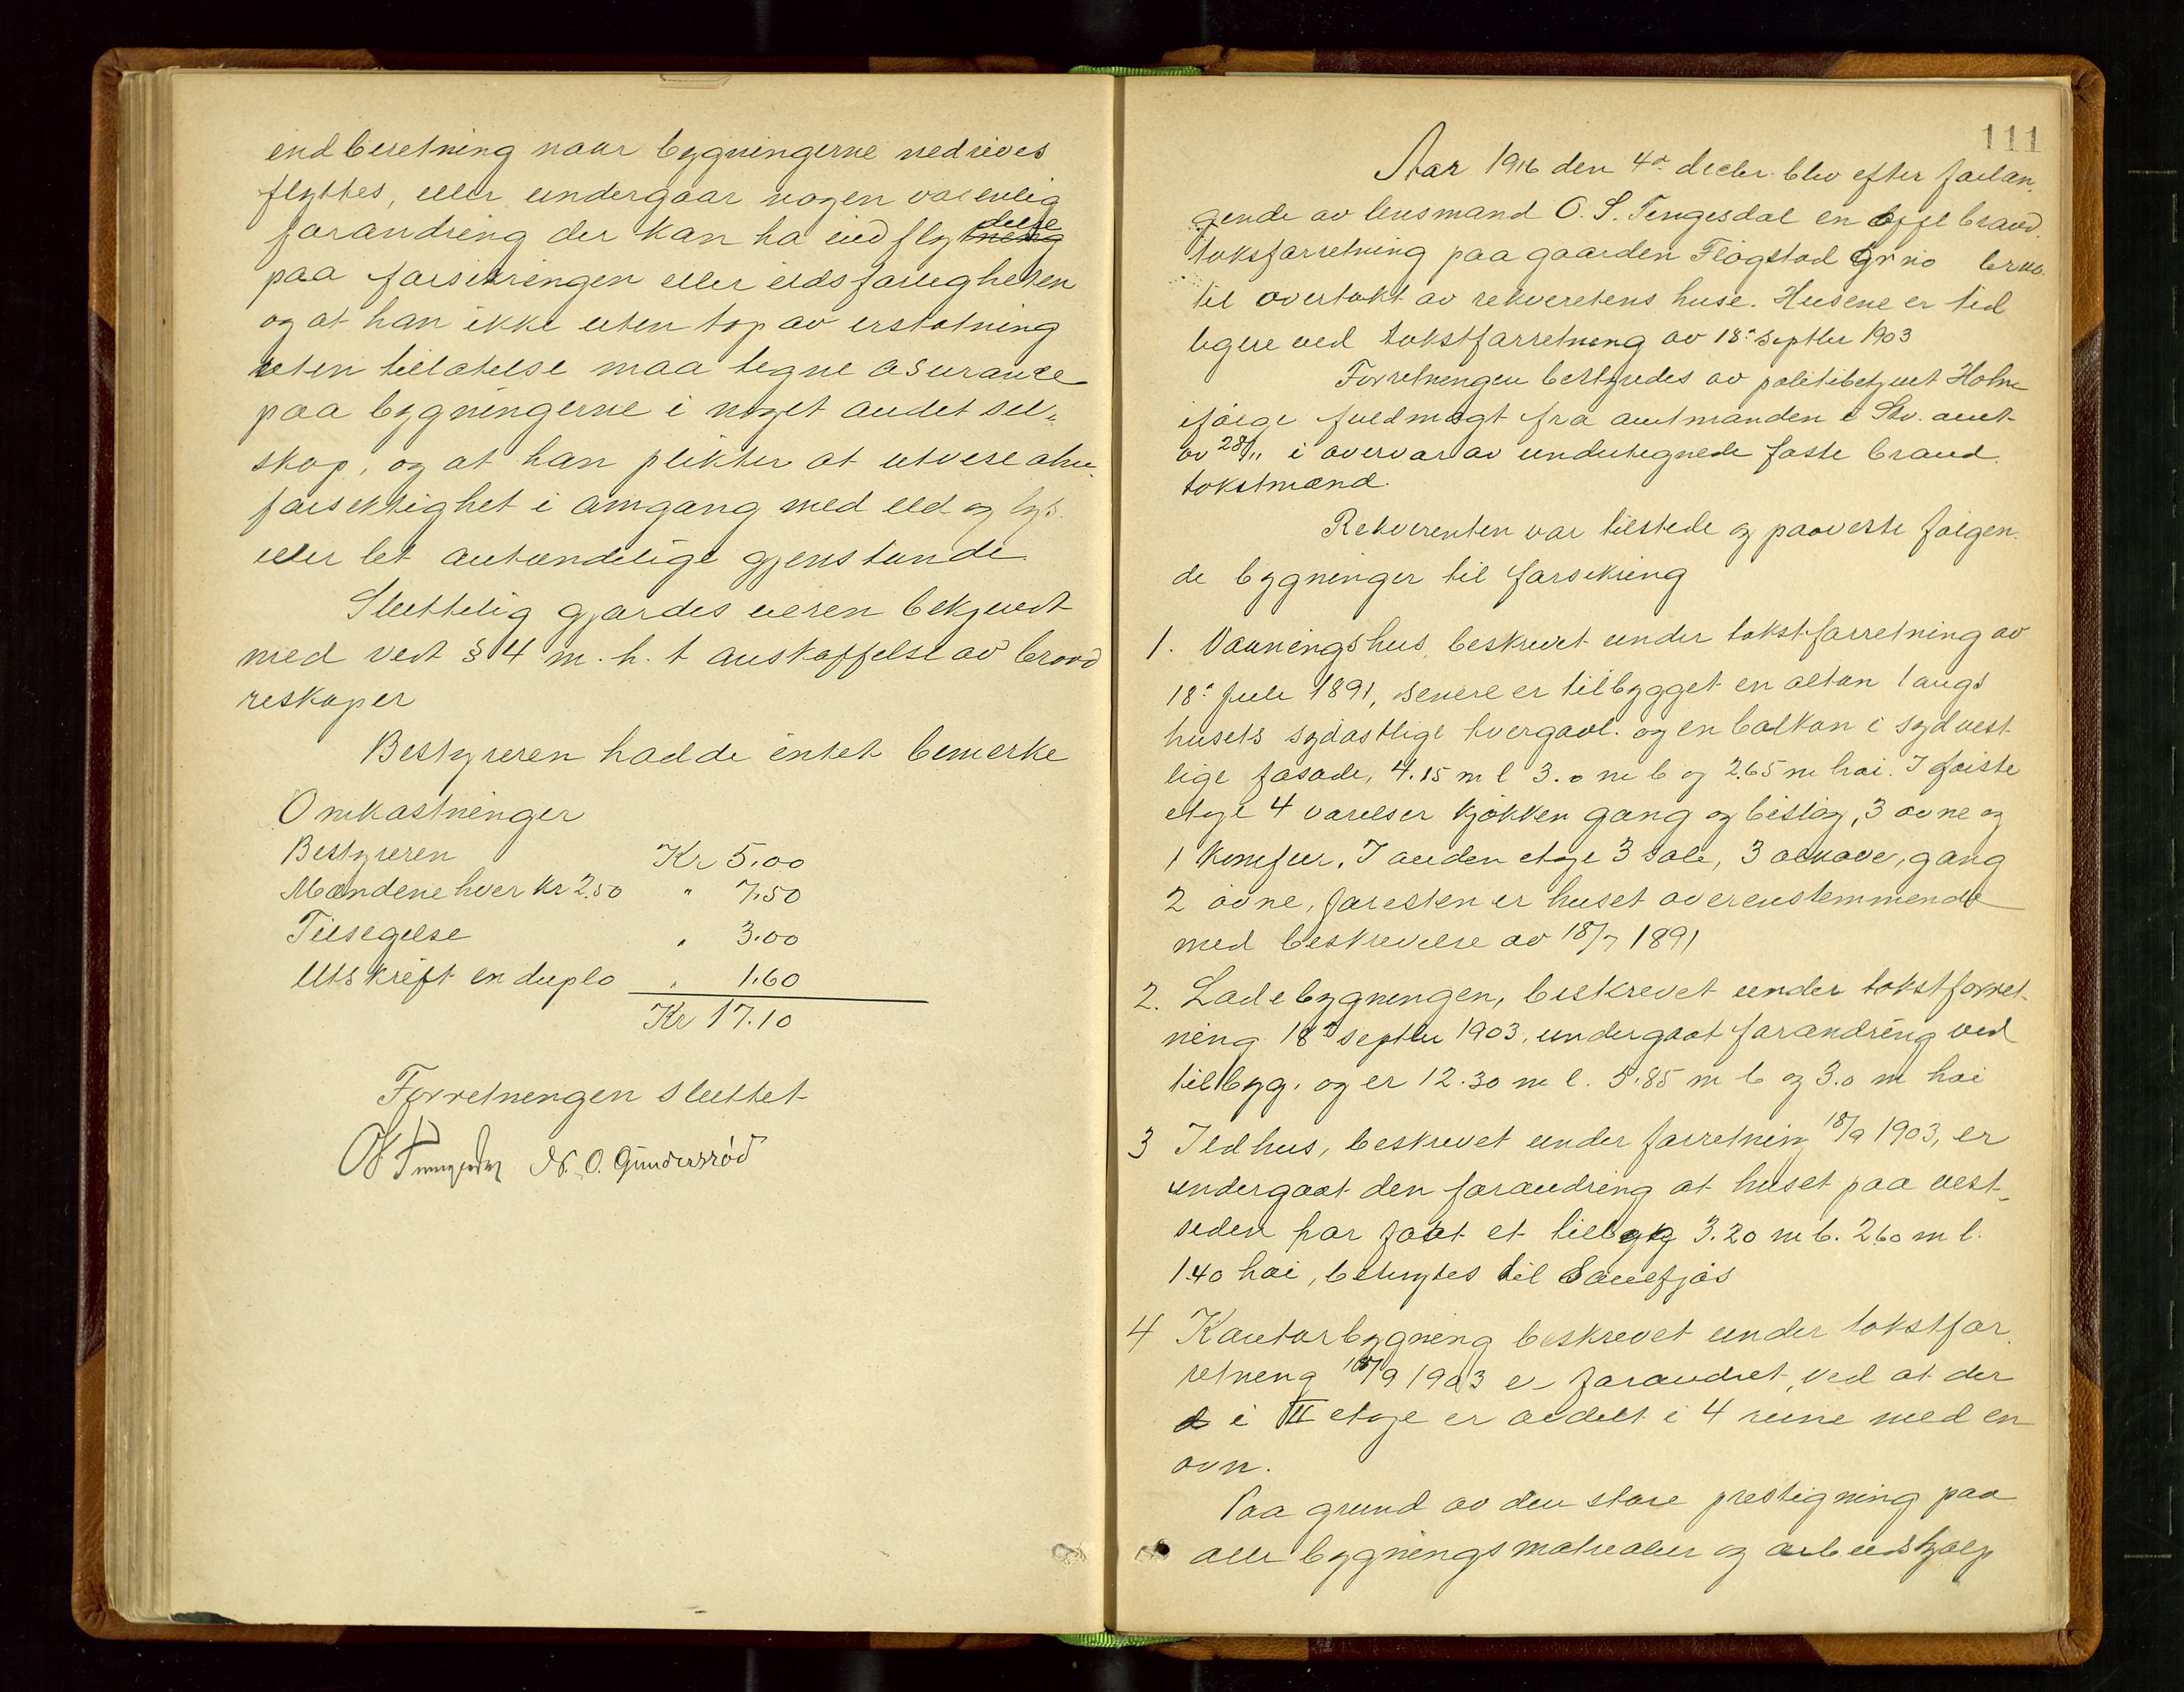 endberetning naar bygningerne nedrives
flyttes, eller undergaar nogen væsenlig
forandring der kan ha indflytning delse
paa forsikringen eller ildsfarligheten
og at han ikke uten tap av erstatning
uten tillatelse maa tegne asurance
paa bygningerne i noget andet sel-
skap, og at han plikter at utvise alm.
forsiktighet i omgang med eld og lys.
eller let antændelige gjenstande.
Sluttelig gjordes eieren bekjendt
med vedt § 4 m. h. t anskaffelse av brand
reskaper
Bestyreren hadde intet bemerke
Omkostninger
Bestyreren Kr 5.00
Mændene hver kr 2.50 " 7.50
Tilsigelse " 3.00
Utskrift in duplo " 1.60
Kr 17.10
Forretningen sluttet
N. O. Gundersrød
111
Aar 1916 den 4de decbr. blev efter forlan-
gende av lensmand O. S. Tengesdal en avh. brand
takstforretning paa gaarden Fløgstad Gr no br no.
til overtakt av rekvirentens huse. Husene er tid
ligere ved takstforretning av 18de septbr 1903
Forretningen bestyredes av politibetjent Holm
ifølge fuldmagt fra amtmanden i Stv. amt
av 28/11 i overvær av undertegnede faste brand
takstmænd.
Rekvirenten var tilstede og paaviste følgen-
de bygninger til forsikring
1. Vaaningshus, beskrevet under takstforretning av
18de Juli 1891, senere er tilbygget en altan langs
husets sydøstlige tvergavl. og en balkon i sydvest
lige fasade, 4.15 m l 3.0 m b og 2.65 m høi. I første
etage 4 værelser kjøkken gang og bislag, 3 ovne og
1 komfur. I anden etage 3 sale, 3 alkover, gang
2 ovne, foresten er huset overenstemmende
med beskrivelse av 18/7 1891
2. Ladebygningen, beskrevet under takstforret-
ning 18de septbr 1903, undergaat forandring ved
tilbyg. og er 12.30 m l. 5.85 m b og 3.0 m høi
3 Ildhus, beskrevet under forretning 18/9 1903, er
undergaat den forandring at huset paa vest-
siden har faat et tilbyg 3.20 m b. 2.60 m l.
1.40 høi, benyttes til Sauefjøs
4 Kontorbygning beskrevet under takstfor-
retning 18/9 1903 er forandret, ved at der
i II etage er avdelt i 4 rum med en
ovn.
Paa grund av den store prestigning paa
alle bygningsmatrealier og arbeidshjælp